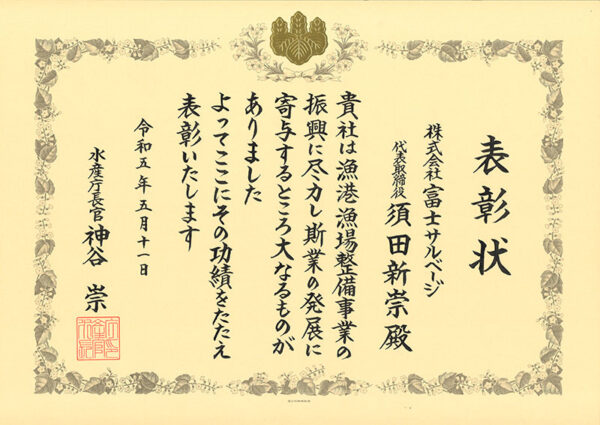 表彰状
株式会社 富士サルベージ
代表取締役 須田新崇殿
貴社は漁港漁場整備事業の
振興に尽力し斯業の発展に
寄与するところ大なるものが
ありました
よってここにその功績をたたえ
表彰いたします
令和五年五月十一日
水産庁長官 神谷 崇